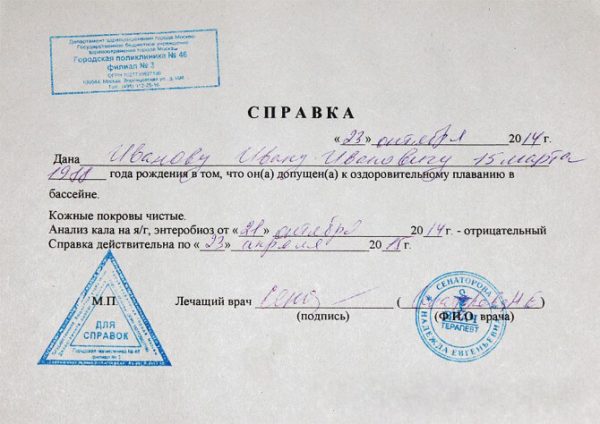 Департамент здравоохранения города Москвы
Государственное бюджетное учреждение
здравоохранения города Москвы
Городская поликлиника № 46
филиал № 3
СПРАВКА
«23» октября 2014 г.
Дана Иванову Ивану Ивановичу 15 марта
1988 года рождения в том, что он(а) допущен(а) к оздоровительному плаванию в
бассейне.
Кожные покровы чистые.
Анализ кала на я/г, энтеробиоз от «21» октября 2014 г. - отрицательный
Справка действительна по «23» апреля 2015 г.
М.П. Лечащий врач ( )
(подпись) (Ф.И.О. врача)
ДЛЯ
СПРАВОК
Городская поликлиника № 46
филиал № 3
СЕНАТОРОВА
НАДЕЖДА ЕВГЕНЬЕВНА
ВРАЧ
ТЕРАПЕВТ